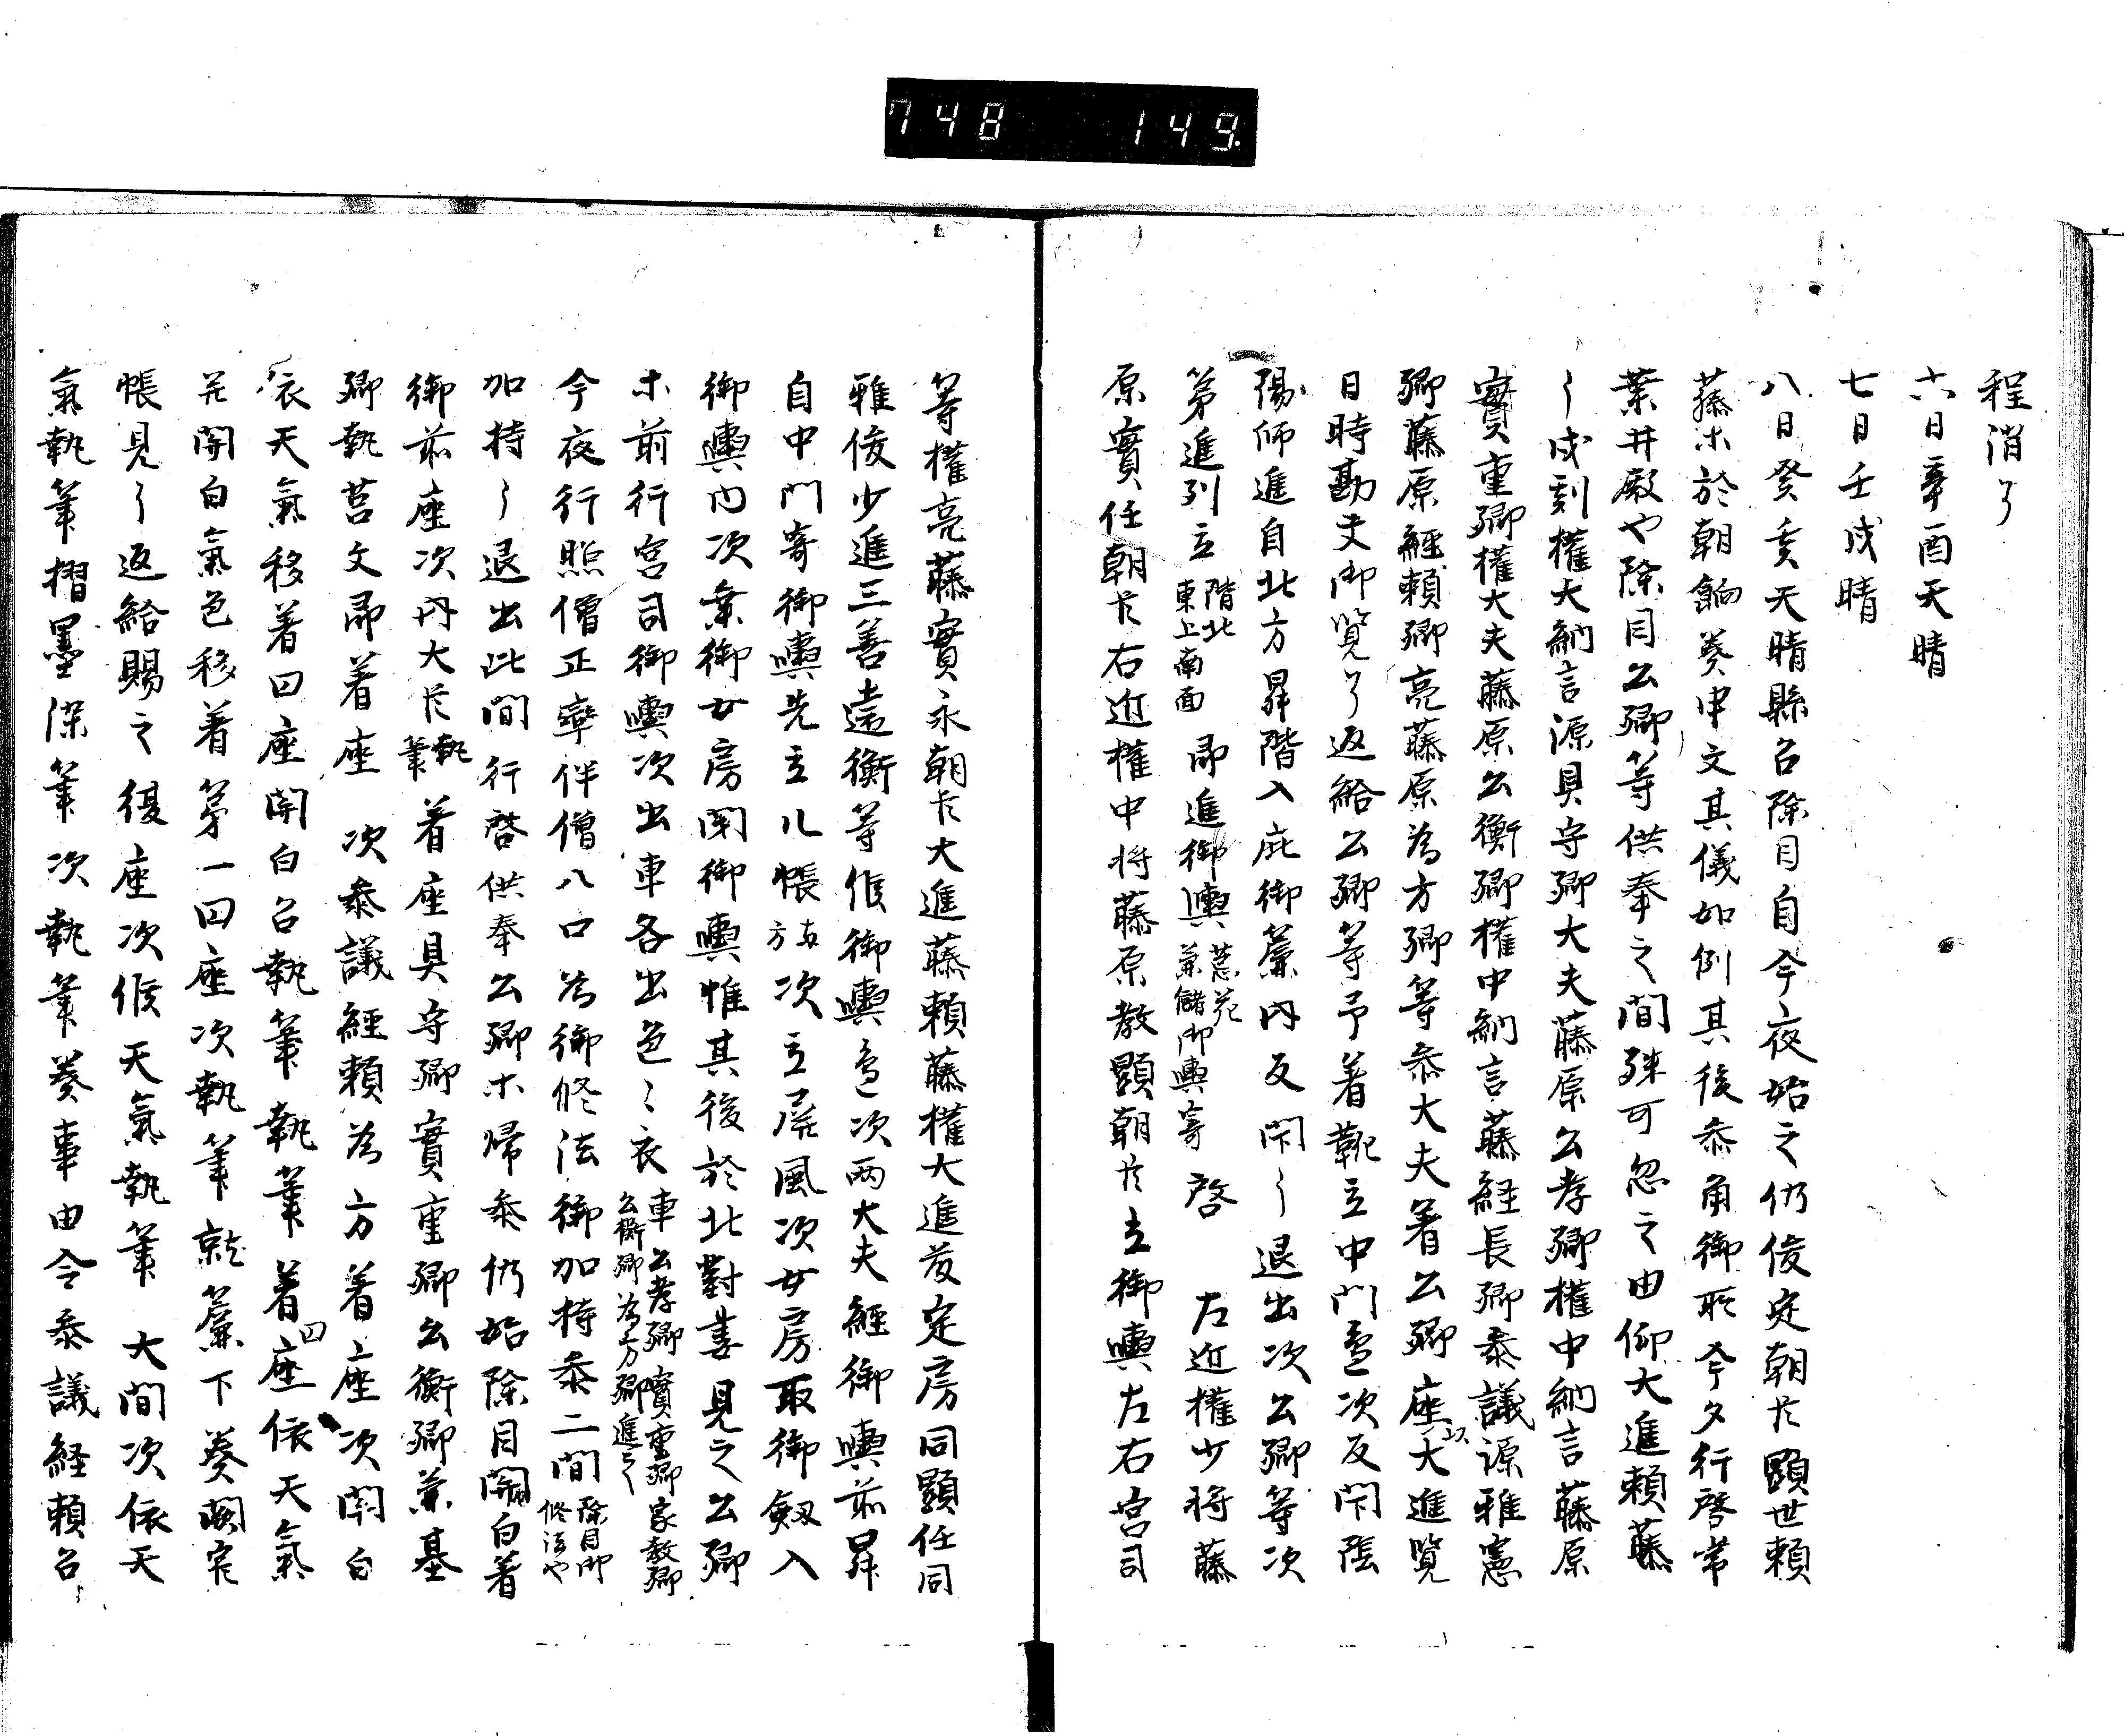 748 149.
程消了
六日辛酉天晴
七日壬戌晴
八日癸亥天晴縣召除目自今夜始之仍俊定朝臣顕世頼
藤ホ於朝餉奏申文其儀如例其後参角御所今夕行啓常
葉井殿也除目公卿等供奉之間殊可忽之由仰大進頼藤
〻戌刻權大納言源具守卿大夫藤原公孝卿權中納言藤原
實重卿權大夫藤原公衡卿權中納言藤経長卿参議源雅憲
卿藤原經頼卿亮藤原為方卿等参大夫着公卿座以大進覧
日時勘文御覧了返給公卿等予着靴立中門邊次反閇陰
陽師進自北方昇階入庇御簾内反閇〻退出次公卿等次
第進列立階北東上南面即進御輿葱花兼儲御輿寄啓 左近權少将藤
原實任朝臣右近權中将藤原教顕朝臣立御輿左右宮司
等權亮藤實永朝臣大進藤頼藤權大進藤定房同顕任同
雅俊少進三善遠衡等候御輿邊次両大夫經御輿前昇
自中門寄御輿先立几帳左右方次立屏風次女房取御劔入
御輿内次乗御女房関御輿帷其後於北對妻見之公卿
ホ前行宮司御輿次出車各出色〻衣車公孝卿實重卿家教卿公衡卿為方卿進之〻
今夜行照僧正率伴僧八口為御修法御加持参二間除目御修法也
加持〻退出此間行啓供奉公卿ホ歸参仍始除目関白着
御前座次内大臣執筆着座具守卿實重卿公衡卿兼基
卿執莒文即着座 次参議經頼為方着座次関白
依天氣移着円座関白召執筆執筆着円座依天氣
于関白氣色移着第一円座次執筆就簾下奏闕官
帳見了返給賜之復座次候天氣執筆 大間次依天
氣執筆摺墨染筆次執筆奏事由令参議経頼召